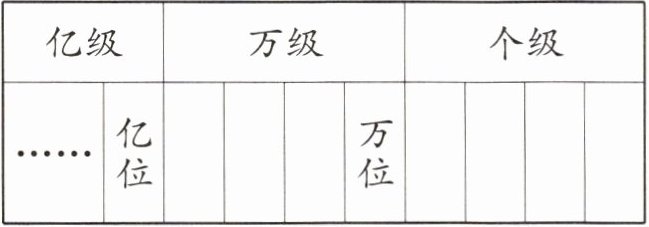 亿级 万级 个级
…… 亿位 万位